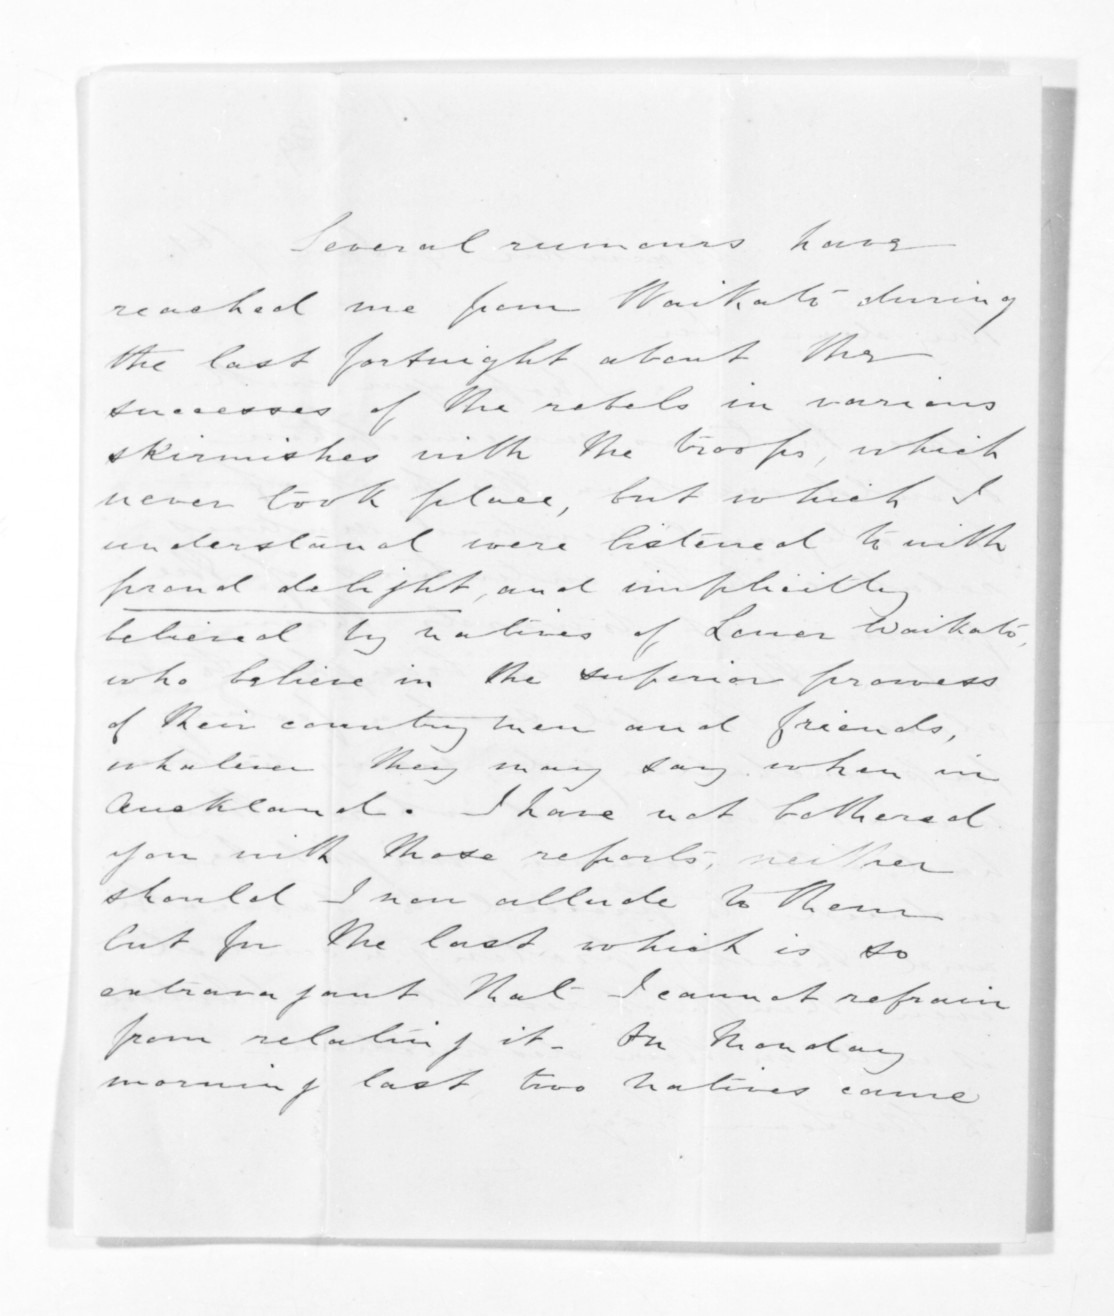 Several rumours have
reached me from Waikato during
the last fortnight about the
successes of the rebels in various
skirmishes with the troops, which
never took place, but which I
understand were listened to with
proud delight, and implicitly
believed by natives of Lower Waikato,
who believe in the superior prowess
of their countrymen and friends,
whatever they may say when in
Auckland. I have not bothered
you with those reports, neither
should I now allude to them
but for the last which is so
extravagant that I cannot refrain
from relating it. On Monday
morning last, two natives came